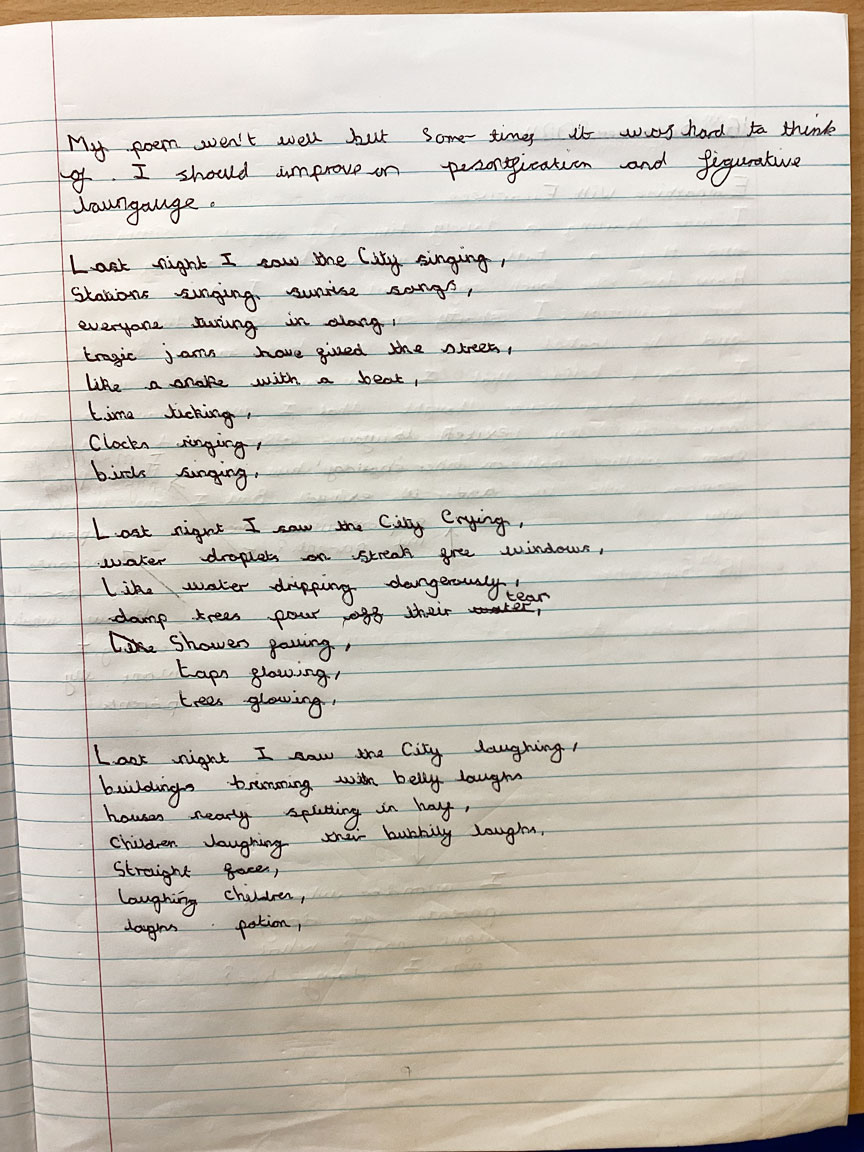 My poem wen't well but Some times it was hard to think
of. I should improve on pesonification and figurative
laungauge.
Last night I saw the City singing,
Stations singing sunrise songs,
everyone tuning in along,
trafic jams have filled the streets,
like a snake with a beat,
time ticking,
Clocks ringing,
birds singing,
Last night I saw the City Crying,
water droplets on streak free windows,
Like water dripping dangerously,
damp trees pour off their water, tear
Like Showers falling,
taps flowing,
trees glowing,
Last night I saw the City laughing,
buildings brimming with belly laughs
houses nearly splitting in half,
Children laughing their bubbily laughs,
Straight faces,
laughing children,
laghs potion,